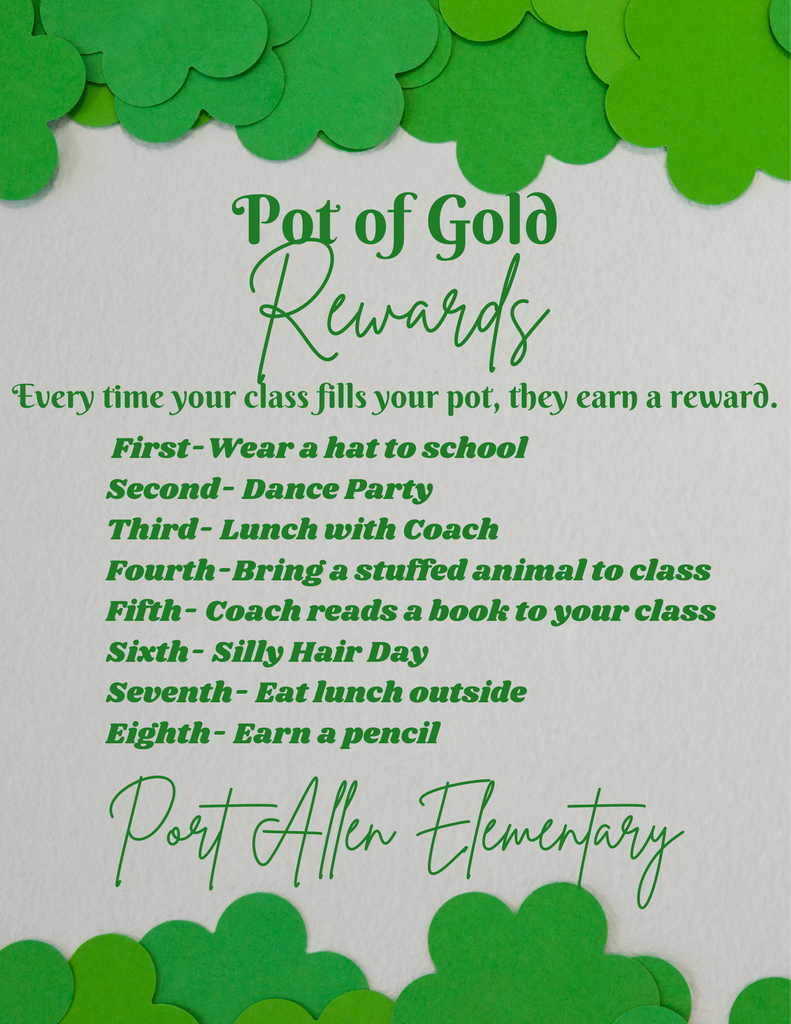 Pot of Gold
Rewards
Every time your class fills your pot, they earn a reward.
First-Wear a hat to school
Second- Dance Party
Third- Lunch with Coach
Fourth-Bring a stuffed animal to class
Fifth- Coach reads a book to your class
Sixth- Silly Hair Day
Seventh- Eat lunch outside
Eighth- Earn a pencil
Port Allen Elementary